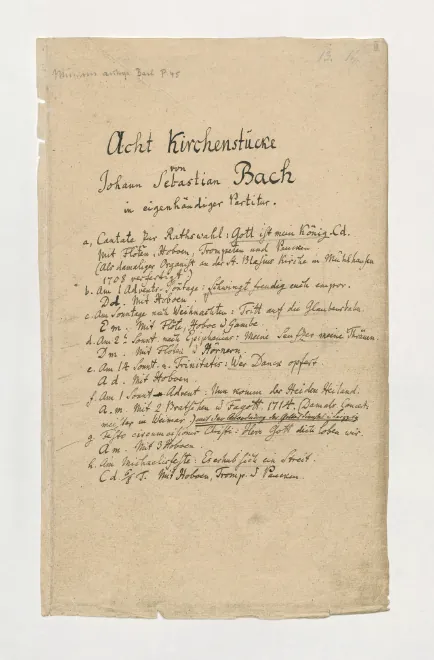 13.
autogr. Bach P. 45
Acht Kirchenstücke
von
Johann Sebastian Bach
in eigenhändiger Partitur.
a, Cantate zur Rathswahl: Gott ist mein König. C d.
Mit Flöten, Hoboen, Trompeten und Paucken
(Als damaliger Organist an der St. Blasius Kirche in Mühlhausen
1708 verfertigt)
b. Am 1 Advents-Sontage: Schwingt freudig euch empor.
D d. Mit Hoboen.
c. Am Sonntage nach Weihnachten: Tritt auf die Glaubensbahn.
E m. Mit Flöte, Hoboe, Gambe
d. Am 2. Sonnt nach Epiphanias: Meine Seufzer meine Thränen.
D m. Mit Flöten
e. Am 14 Sonnt. n. Trinitatis: Wer Danck opfert.
A d. Mit Hoboen
f. Am 1 Sonnt Advent: Nun komm der Heiden Heiland.
A. m. Mit 2 Bratschen Fagott. 1714. (Damals Concert-
meister in Weimar)
g. Festo circumcisionis Christi: Herr Gott dich loben wir.
A m. Mit 3 Hoboen
h. Am Michaelisfeste: Es erhub sich ein Streit.
C d. Mit Hoboen, Tromp. Paucken.